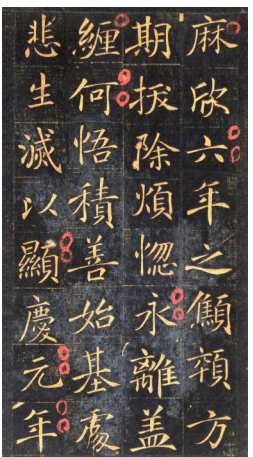 麻欣六年之顦顇方
期拔除煩惱永離盖
纏何悟積善始基
悲生滅以顯慶元年